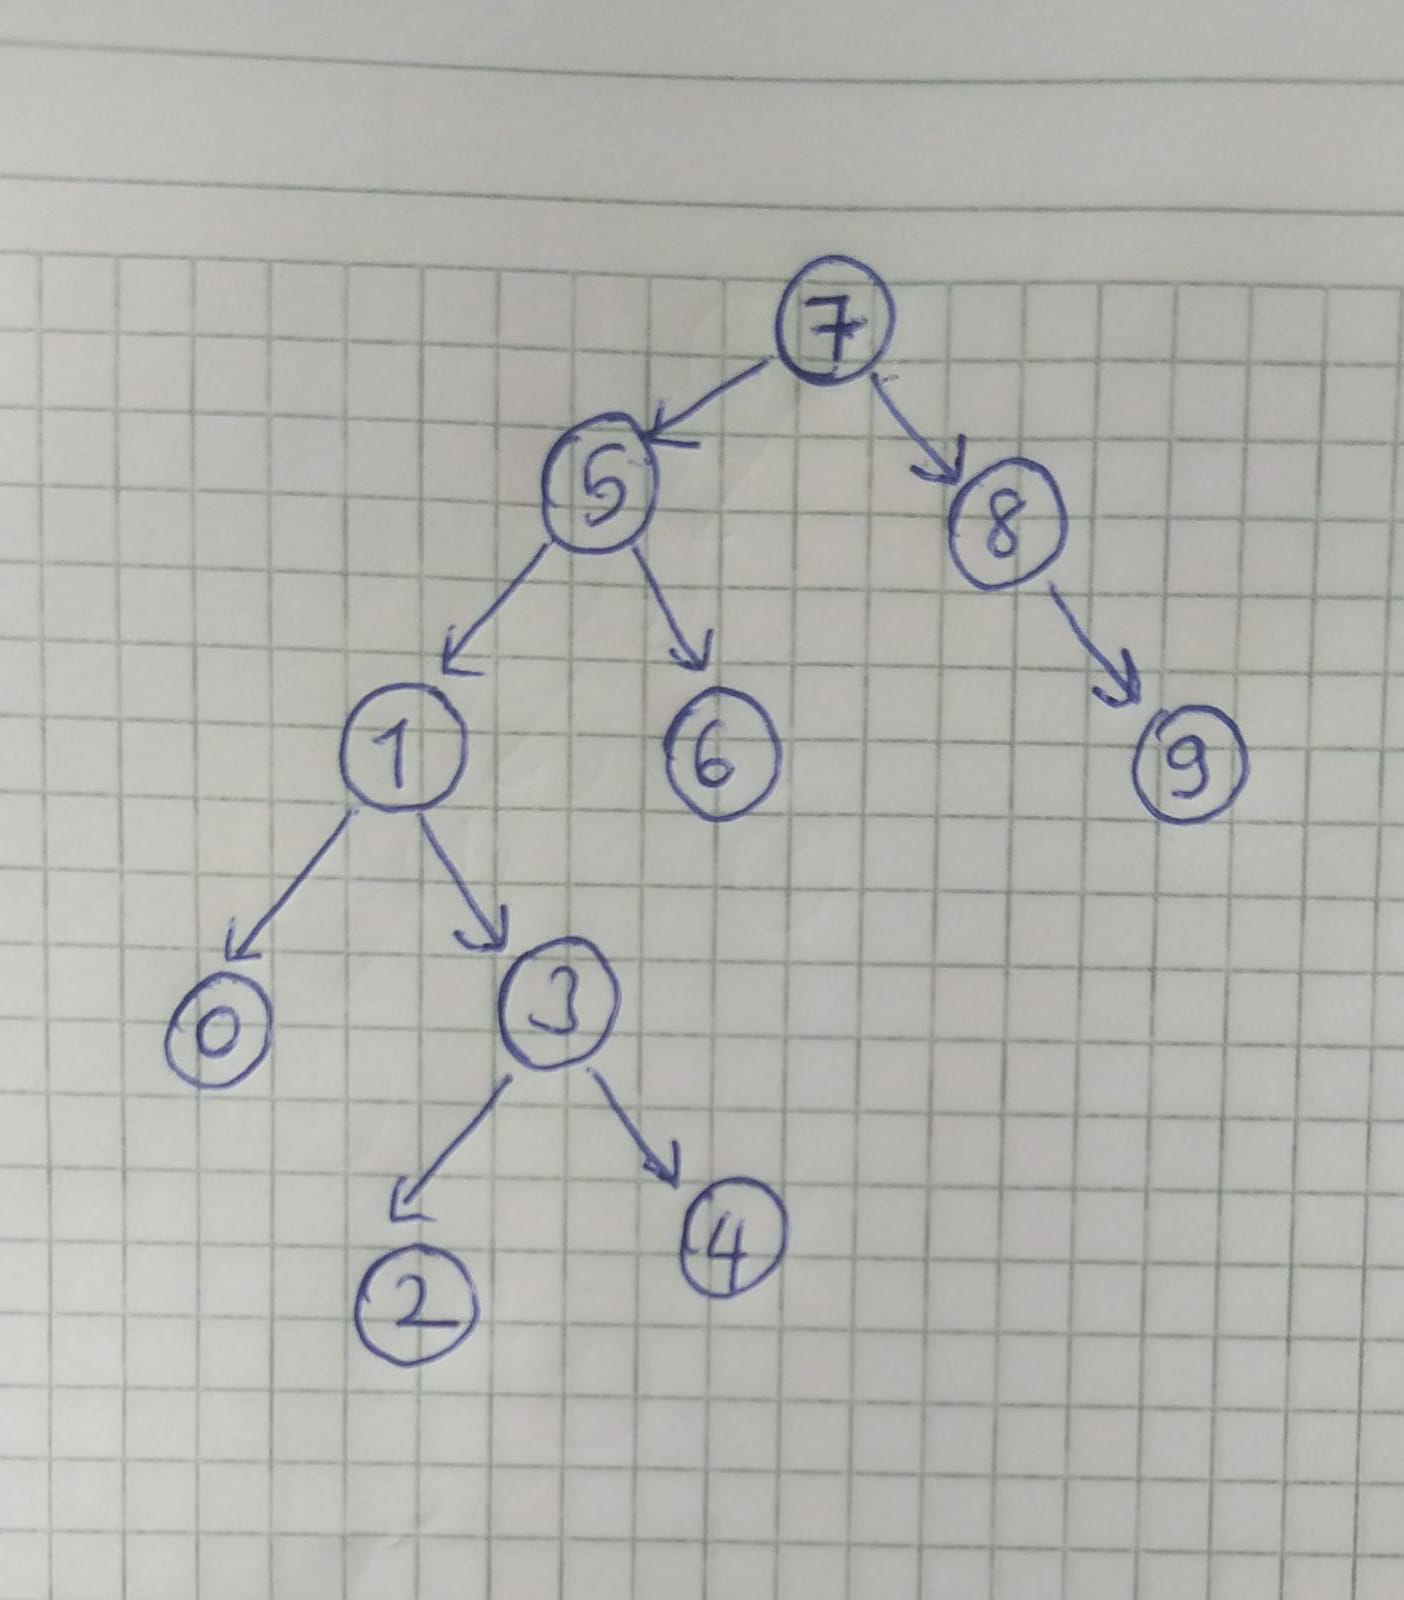 7
5
8
1
6
9
0
3
2
4